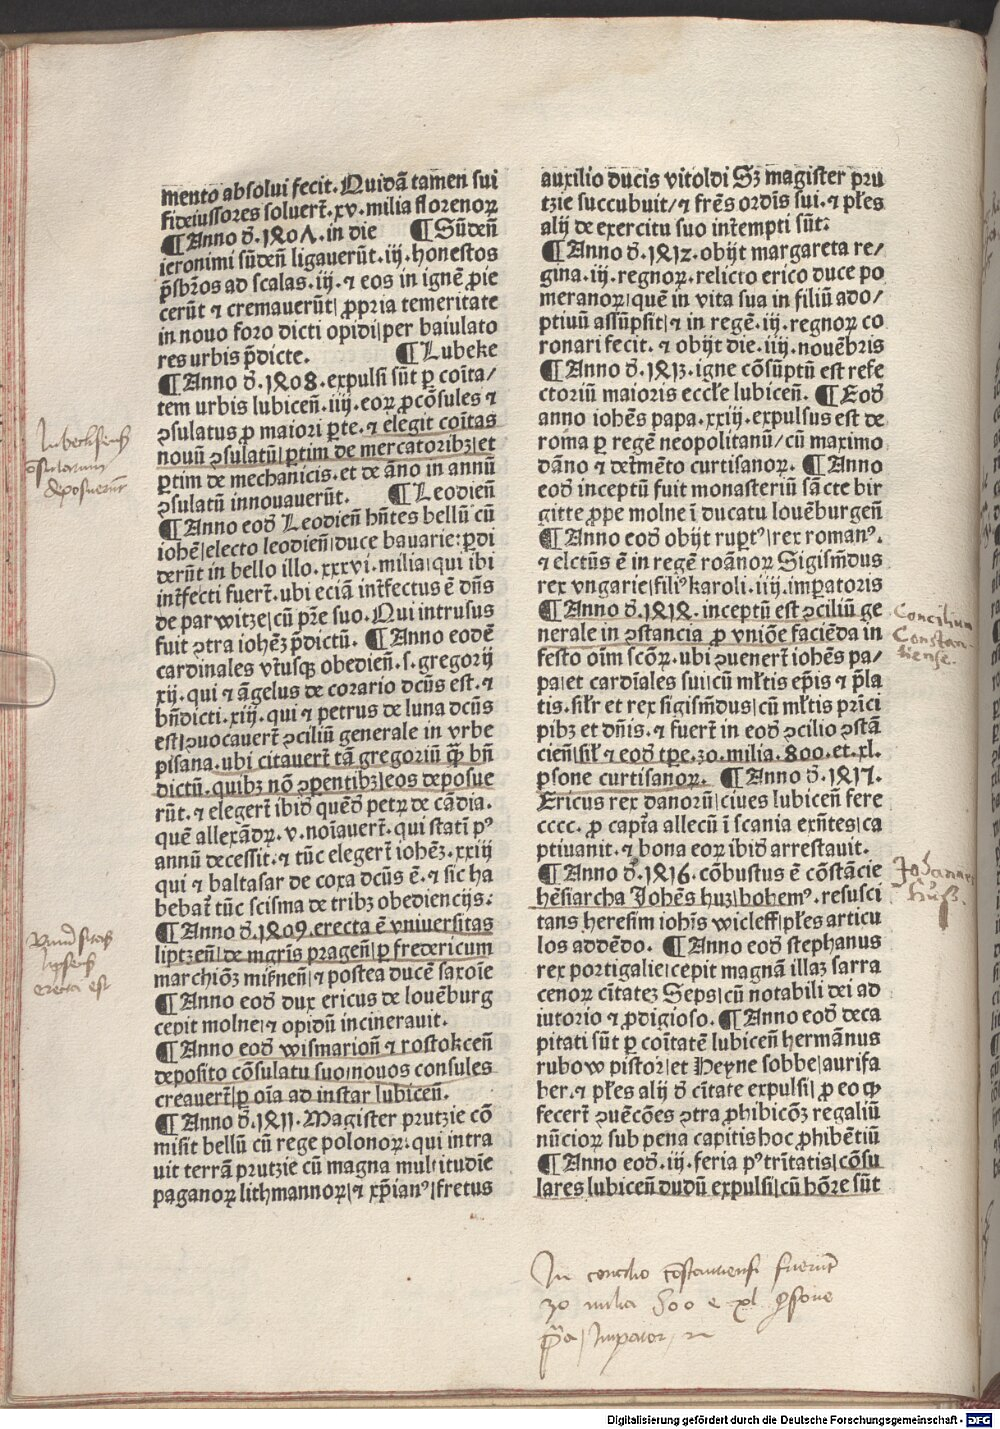 mento absolui fecit. Quidã tamen sui
fideiussores soluerť. xv. milia florenoꝝ
¶ Anno đ. 1407. in die ¶ Sũdeñ
ieronimi sũdeñ ligauerũt. iij. honestos
p̃sbr̃os ad scalas. iij. ⁊ eos in ignẽ ꝓie
cerũt ⁊ cremauerũt/ ꝓpria temeritate
in nouo foro dicti opidi/ per baiulato
res urbis p̃dicte. ¶ Lubeke
¶ Anno đ. 1408. expulsi sũt ꝑ coĩta/
tem urbis lubiceñ. iiij. eoꝝ ꝓcõsules ⁊
ꝯsulatus ꝓ maiori ꝑte. ⁊ elegit coĩtas
nouũ ꝯsulatũ/ ꝑtim de mercatoribꝫ/ et
ꝑtim de mechanicis. et de ãno in annũ
ꝯsulatũ innouauerũt. ¶ Leodieñ
¶ Anno eođ Leodieñ hñtes bellũ cũ
iohẽ/ electo leodieñ/ duce bauarie: ꝑdi
derũt in bello illo. xxxvi. milia/ qui ibi
inťfecti fuerť. ubi eciã inťfectus ẽ dñs
de parwitze/ cũ pr̃e suo. Qui intrusus
fuit ꝯtra iohẽꝫ p̃dictũ. ¶ Anno eodẽ
cardinales vťusqꝫ obedieñ. s. gregorij
xij. qui ⁊ ãgelus de corario dc̃us est. ⁊
bñdicti. xiij. qui ⁊ petrus de luna dc̃us
est/ ꝯuocauerť ꝯciliũ generale in vrbe
pisana. ubi citauerť tã gregoriũ q̃ꝫ bñ
dictũ. quibꝫ nõ ꝯꝑentibꝫ/ eos deposue
rũt. ⁊ elegerť ibiđ quẽđ petꝝ de cãdia.
quẽ allexãdꝝ. v. noĩauerť. qui statĩ pꝰ
annũ decessit. ⁊ tũc elegerť iohẽꝫ. xxiij
qui ⁊ baltasar de coxa dc̃us ẽ. ⁊ sic ha
bebať tũc scisma de tribꝫ obediencijs:
¶ Anno đ. 1409. erecta ẽ vniuersitas
liptzeñ/ de mgr̃is prageñ/ ꝑ fredericum
marchiõꝫ mißneñ/ ⁊ postea ducẽ saxoĩe
¶ Anno eođ dux ericus de louẽburg
cepit molne/ ⁊ opidũ incinerauit.
¶ Anno eođ wismarioñ ⁊ rostokceñ
deposito cõsulatu suo/ nouos consules
creauerť/ ꝑ oĩa ad instar lubiceñ.
¶ Anno đ. 1411. Magister prutzie cõ
misit bellũ cũ rege polonoꝝ. qui intra
uit terrã prutzie cũ magna multitudĩe
paganoꝝ lithmannoꝝ/ ⁊ xp̃ianꝰ/ fretus
auxilio ducis vitoldi Sꝫ magister pru
tzie succubuit/ ⁊ fr̃es ordĩs sui. ⁊ płes
alij de exercitu suo inťempti sũt:
¶ Anno đ. 1412. obijt margareta re/
gina. iij. regnoꝝ. relicto erico duce po
meranoꝝ/ quẽ in vita sua in filiũ ado/
ptiuũ assũpsit/ ⁊ in regẽ. iij. regnoꝝ co
ronari fecit. ⁊ obijt die. iiij. nouẽbris
¶ Anno đ. 1413. igne cõsũptũ est refe
ctoriũ maioris eccłe lubiceñ. ¶ Eođ
anno iohẽs papa. xxiij. expulsus est de
roma ꝑ regẽ neopolitanũ/ cũ maximo
dãno ⁊ deťmẽto curtisanoꝝ. ¶ Anno
eođ inceptũ fuit monasteriũ sãcte bir
gitte ꝓpe molne ĩ ducatu louẽburgeñ
¶ Anno eođ obijt ruꝑtꝰ/ rex romanꝰ.
⁊ elctũs ẽ in regẽ roãnoꝝ Sigism̃dus
rex vngarie/ filiꝰ karoli. iiij. imꝑatoris
¶ Anno đ. 1414. inceptũ est ꝯciliũ ge
nerale in ꝯstancia ꝓ vniõe faciẽda in
festo oĩm scõꝝ. ubi ꝯuenerť iohẽs pa/
pa/ et cardĩales sui/ cũ młtis ep̃is ⁊ p̃la
tis. siłr et rex sigism̃dus/ cũ młtis prĩci
pibꝫ et dñis. ⁊ fuerť in eođ ꝯcilio ꝯstã
cieñ/ sił ⁊ eođ tꝑe. 30. milia. 800. et. xl.
ꝑsone curtisanoꝝ. ¶ Anno đ. 1417.
Ericus rex danorũ/ ciues lubiceñ fere
cccc. ꝓ capťa allecũ ĩ scania exñtes/ ca
ptiuauit. ⁊ bona eoꝝ ibiđ arrestauit.
¶ Anno đ. 1416. cõbustus ẽ cõstãcie
hẽsiarcha Johẽs huꝫ/ bohemꝰ. resusci
tans heresim ioħis wicleff/ płes articu
los addẽdo. ¶ Anno eođ stephanus
rex portigalie/ cepit magnã illaꝫ sarra
cenoꝝ cĩtateꝫ Seps/ cũ notabili dei ad
iutorio ⁊ ꝓdigioso. ¶ Anno eođ deca
pitati sũt ꝑ coĩtatẽ lubiceñ hermãnus
rubow pistor/ et Heyne sobbe/ aurifa
ber. ⁊ płes alij đ cĩtate expulsi/ ꝓ eo ꝙ
fecerť ꝯuẽcões ꝯtra ꝓhibicõꝫ regaliũ
nũcioꝝ sub pena capitis hoc ꝓhibẽtiũ
¶ Anno eođ. iij. feria pꝰ trĩtatis/ cõsu
lares lubiceñ dudũ expulsi/ cũ hõre sũt
Lubecksens̃
ꝯsulatum
deposuerũt
Vniũsitas
lipsens̃
erecta est
Concilium
Constan-
tiense.
Johannes
Huß.
In concilio cõstantiensi fuerũt
30 milia 800 e xl ꝑsone
pp̃a / Imperator, ⁊c
Digitalisierung gefördert durch die Deutsche Forschungsgemeinschaft - DFG